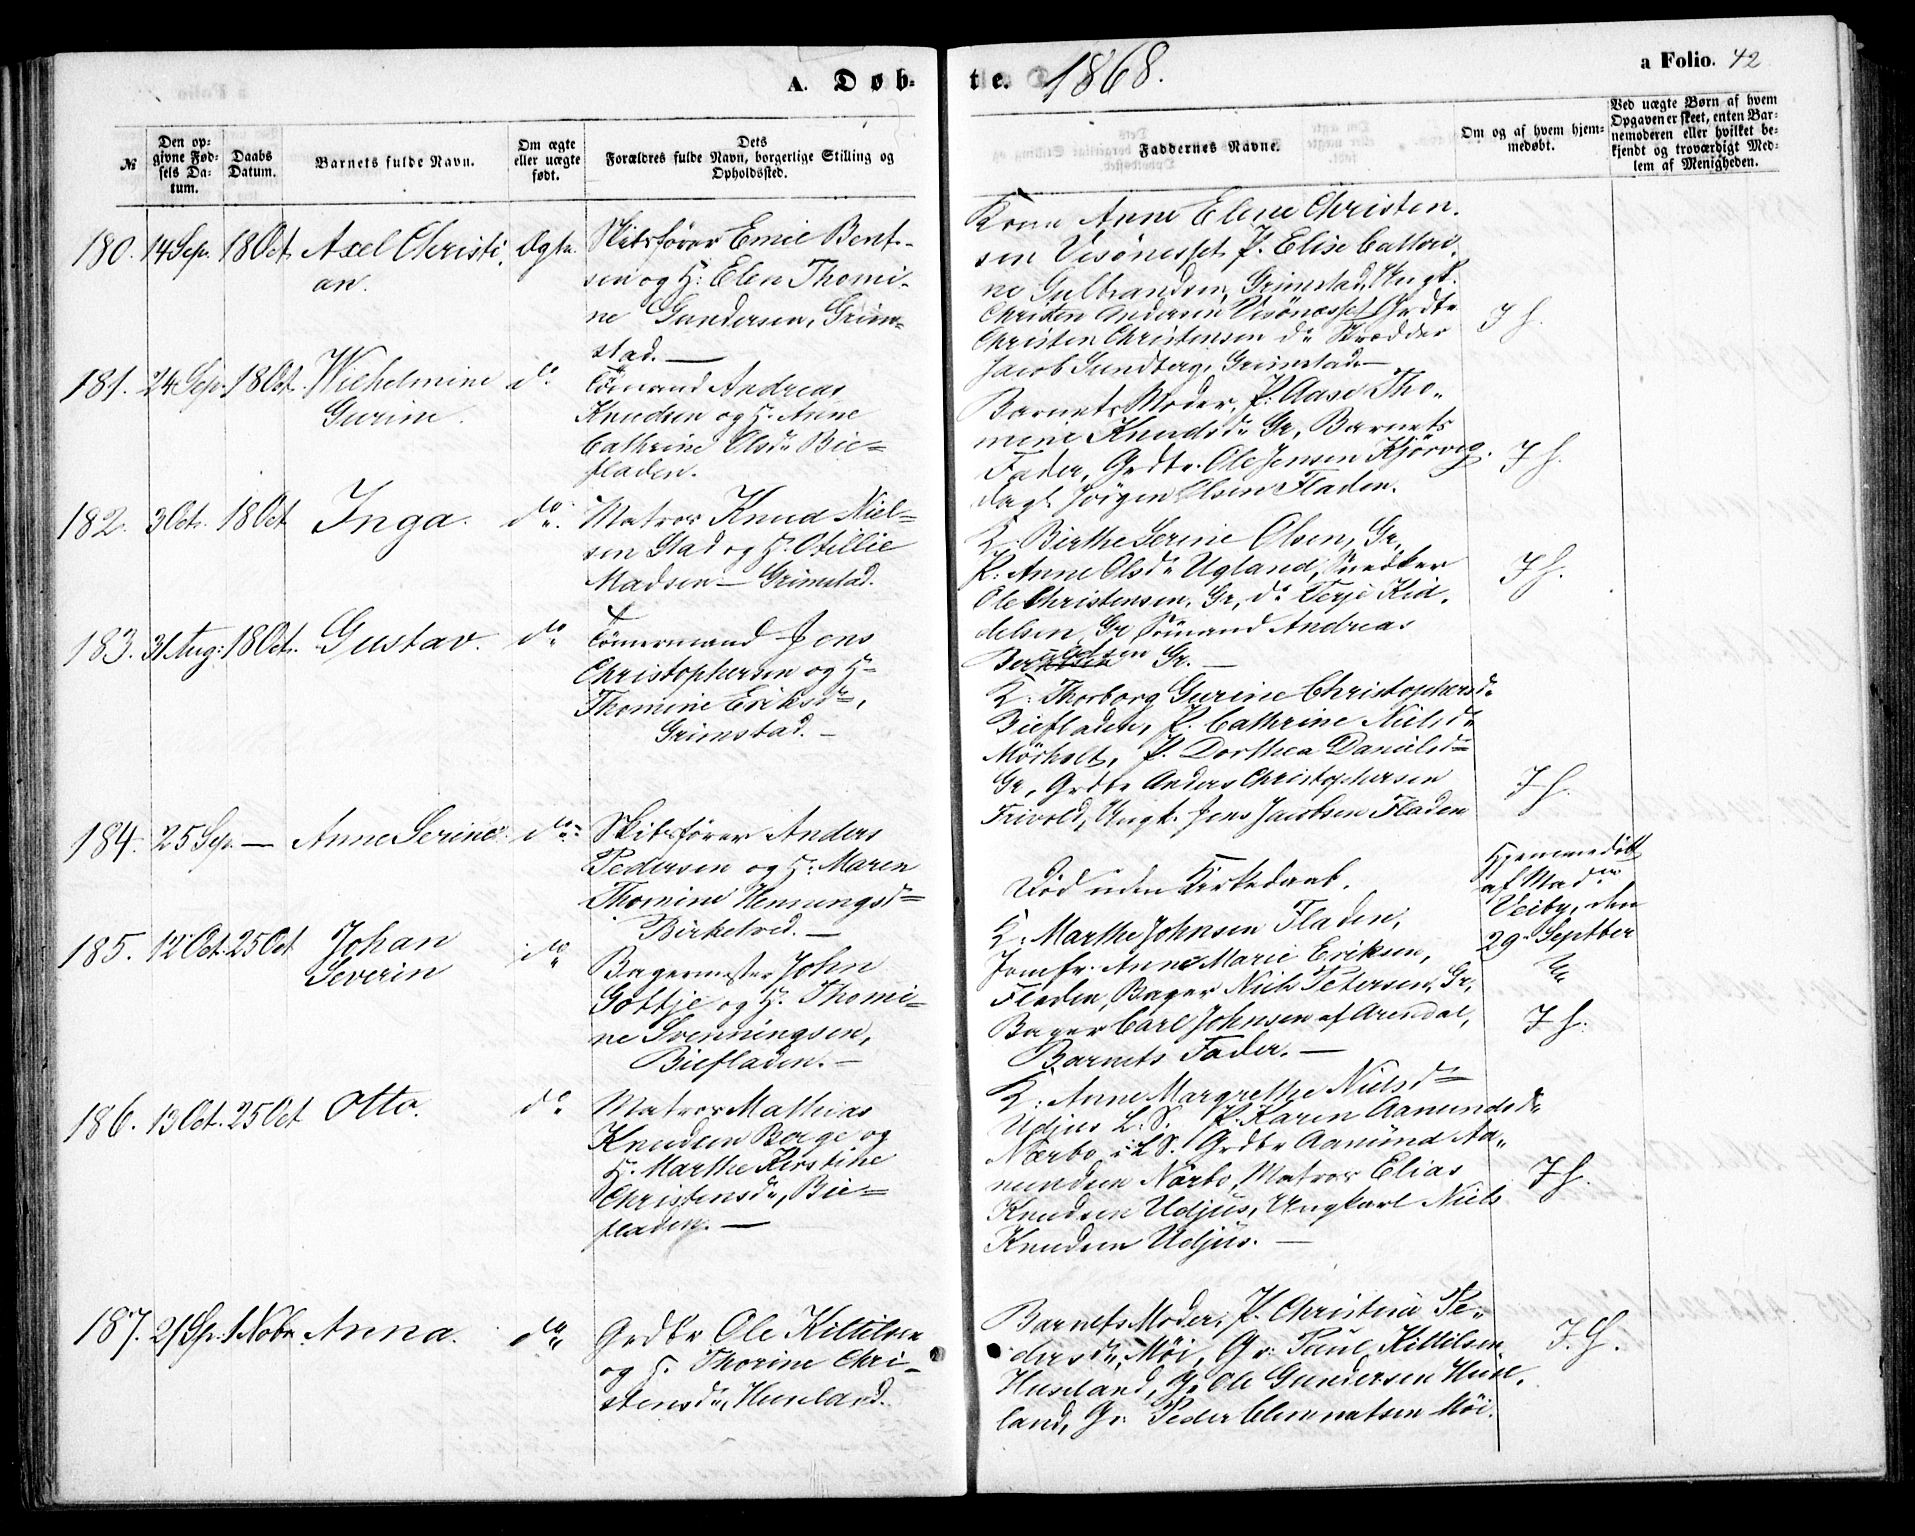 A. Døb-
te. 1868.
a Folio. 42
№
Den op-
givne Fød-
sels Da-
tum.
Daabs
Datum.
Barnets fulde Navn.
Om ægte
eller uægte
født.
Dets
Forældres fulde Navn, borgerlige Stilling og
Opholdssted.
Faddernes Navne.
Om og af hvem hjem-
medøbt.
Ved uægte Børn af hvem
Opgaven er skeet, enten Bar-
nemoderen eller hvilket be-
kjendt og troværdigt Med-
lem af Menigheden.
180. 14 Sep. 18 Oct. Axel Christi-
an.
Ægte.
Skibsfører Emil Bent-
sen og H: Elen Thomi-
ne Gundersen, Grim-
stad. —
Kone Anne Elene Christen-
sen Vesönesset, P. Elise Cathri-
ne Gulbrandsen, Grimstad, Ungk.
Christen Andersen Vesönesset Grdbr
Christen Christensen do Skrædder
Jacob Sundberg, Grimstad —
I H.
181. 24 Sep. 18 Oct. Wilhelmine
Gurine.
do
Tömmand Andreas
Knudsen og H. Anne
Cathrine Olsdr Bie-
fladen.
Barnets Moder, P: Aase Tho-
mine Knudsdr Gr, Barnets
Fader, Grdbr. Ole Jensen Kjörvig.
Dagl. Jörgen Olsen Fladen.
I H.
182. 3 Oct. 18 Oct. Inga.
do
Matros Knud Niel-
sen Stad og H. Otillie
Madsen — Grimstad.
K. Birthe Serine Olsen, Gr,
P: Anne Olsdr Ugland, Snedker
Ole Christensen, Gr, do Terje Kid-
delsen Gr Sömand Andreas
Gr. —
I H.
183. 31 Aug: 18 Oct. Gustav.
do
Tömmermand Jens
Christophersen og H:
Thomine Eriksdr,
Grimstad. —
K: Thorborg Gurine Christophersdr
Biefladen, P. Cathrine Nielsdr
Mörholt, P. Dorthea Danielsdr
Gr, Grdbr Anders Christophersen
Frivold, Ungk. Jens Jacobsen Fladen
I H.
184. 25 Sep. — Anne Serine
do
Skibsfører Anders
Pedersen og H: Maren
Thomine Hemingsdr
Birketved. —
Død uden Kirkedaab.
Hjemmedöbt
af Madm
Veiby, den
29de Septber
185. 12 Oct. 25 Oct Johan
Severin
do
Bagermester John
Gottje og H. Thomi-
ne Svenningsen,
Biefladen. —
K: Marthe Johnsen Fladen,
Jomfr. Anne Marie Eriksen,
Fladen, Bager Niels Petersen, Gr,
Bager Carl Johnsen af Arendal,
Barnets Fader. —
I H.
186. 13 Oct. 25 Oct Otto.
do
Matros Mathias
Knudsen Berge og
H. Marthe Kirstine
Christensdr, Bie-
fladen. —
K: Anne Margrethe Nielsdr
Udjus L. S. P. Karen Aamundsdr
Nærbo i L S. Grdbr Aamund Aa-
mundsen Nærbo, Matros Elias
Knudsen Udjus, Ungkarl Niels
Knudsen Udjus. —
I H.
187. 21 Sp. 1 Nobr. Anna.
do
Grdbr Ole Kittilsen
og H. Thorine Chri-
stensdr, Huseland.
Barnets Moder, P. Christine Pe-
dersdr, Möi, Gr: Paul Kittilsen,
Huseland, Gr Ole Gundersen Huse-
land, Gr. Peder Clemmetsen Möi.
I. H.